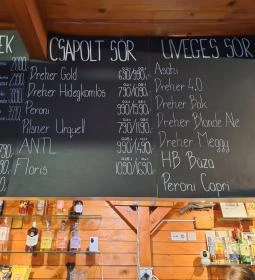 EK
CSAPOLT SÖR
ÜVEGES SÖR
Dreher Gold
Dreher Hidegkomlós 790/1090.-
Peroni 990/1590.-
Pilsner Urquell 790/1190.-
ANTL 990/1490.-
Floris 1090/1690.-
Asahi
Dreher 4.0
Dreher Bak
Dreher Blonde Ale
Dreher Meggy
HB Búza
Peroni Capri